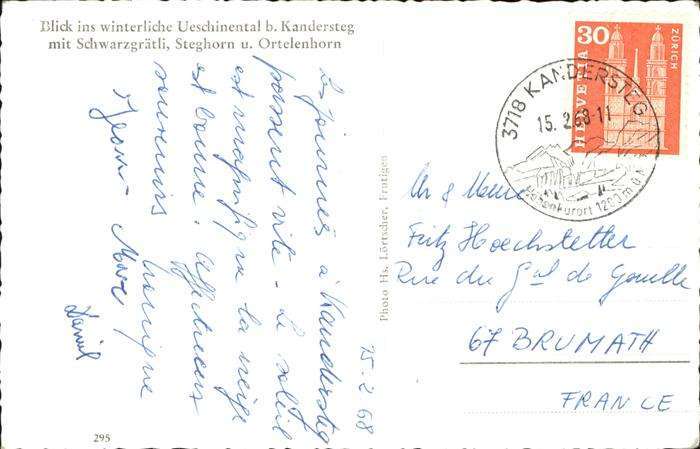 Blick ins winterliche Ueschinental b. Kandersteg
mit Schwarzgrätli, Steghorn u. Ortelenhorn
Les Journées à Kandersteg
passent vite - Le soleil
est magnifique la neige
est bonne. Affectueux
souvenirs Monique
Jean-Marc
Daniel
15.2.68
295
Photo Hs. Lörtscher, Frutigen
HELVETIA
30
ZÜRICH
3718 KANDERSTEG
15.2.68-11
Höhenkurort 1200 m ü. M.
Mr & Mme
Fritz Hoechstetter
Rue du Gal de Gaulle
67 BRUMATH
FRANCE